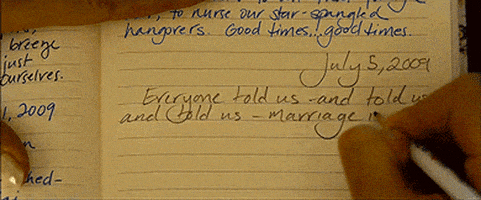 breeze
just
ourselves.
, 2009
, to nurse our star-spangled
hangovers. Good times...good times.
July 5, 2009
Everyone told us - and told us
and told us - marriage